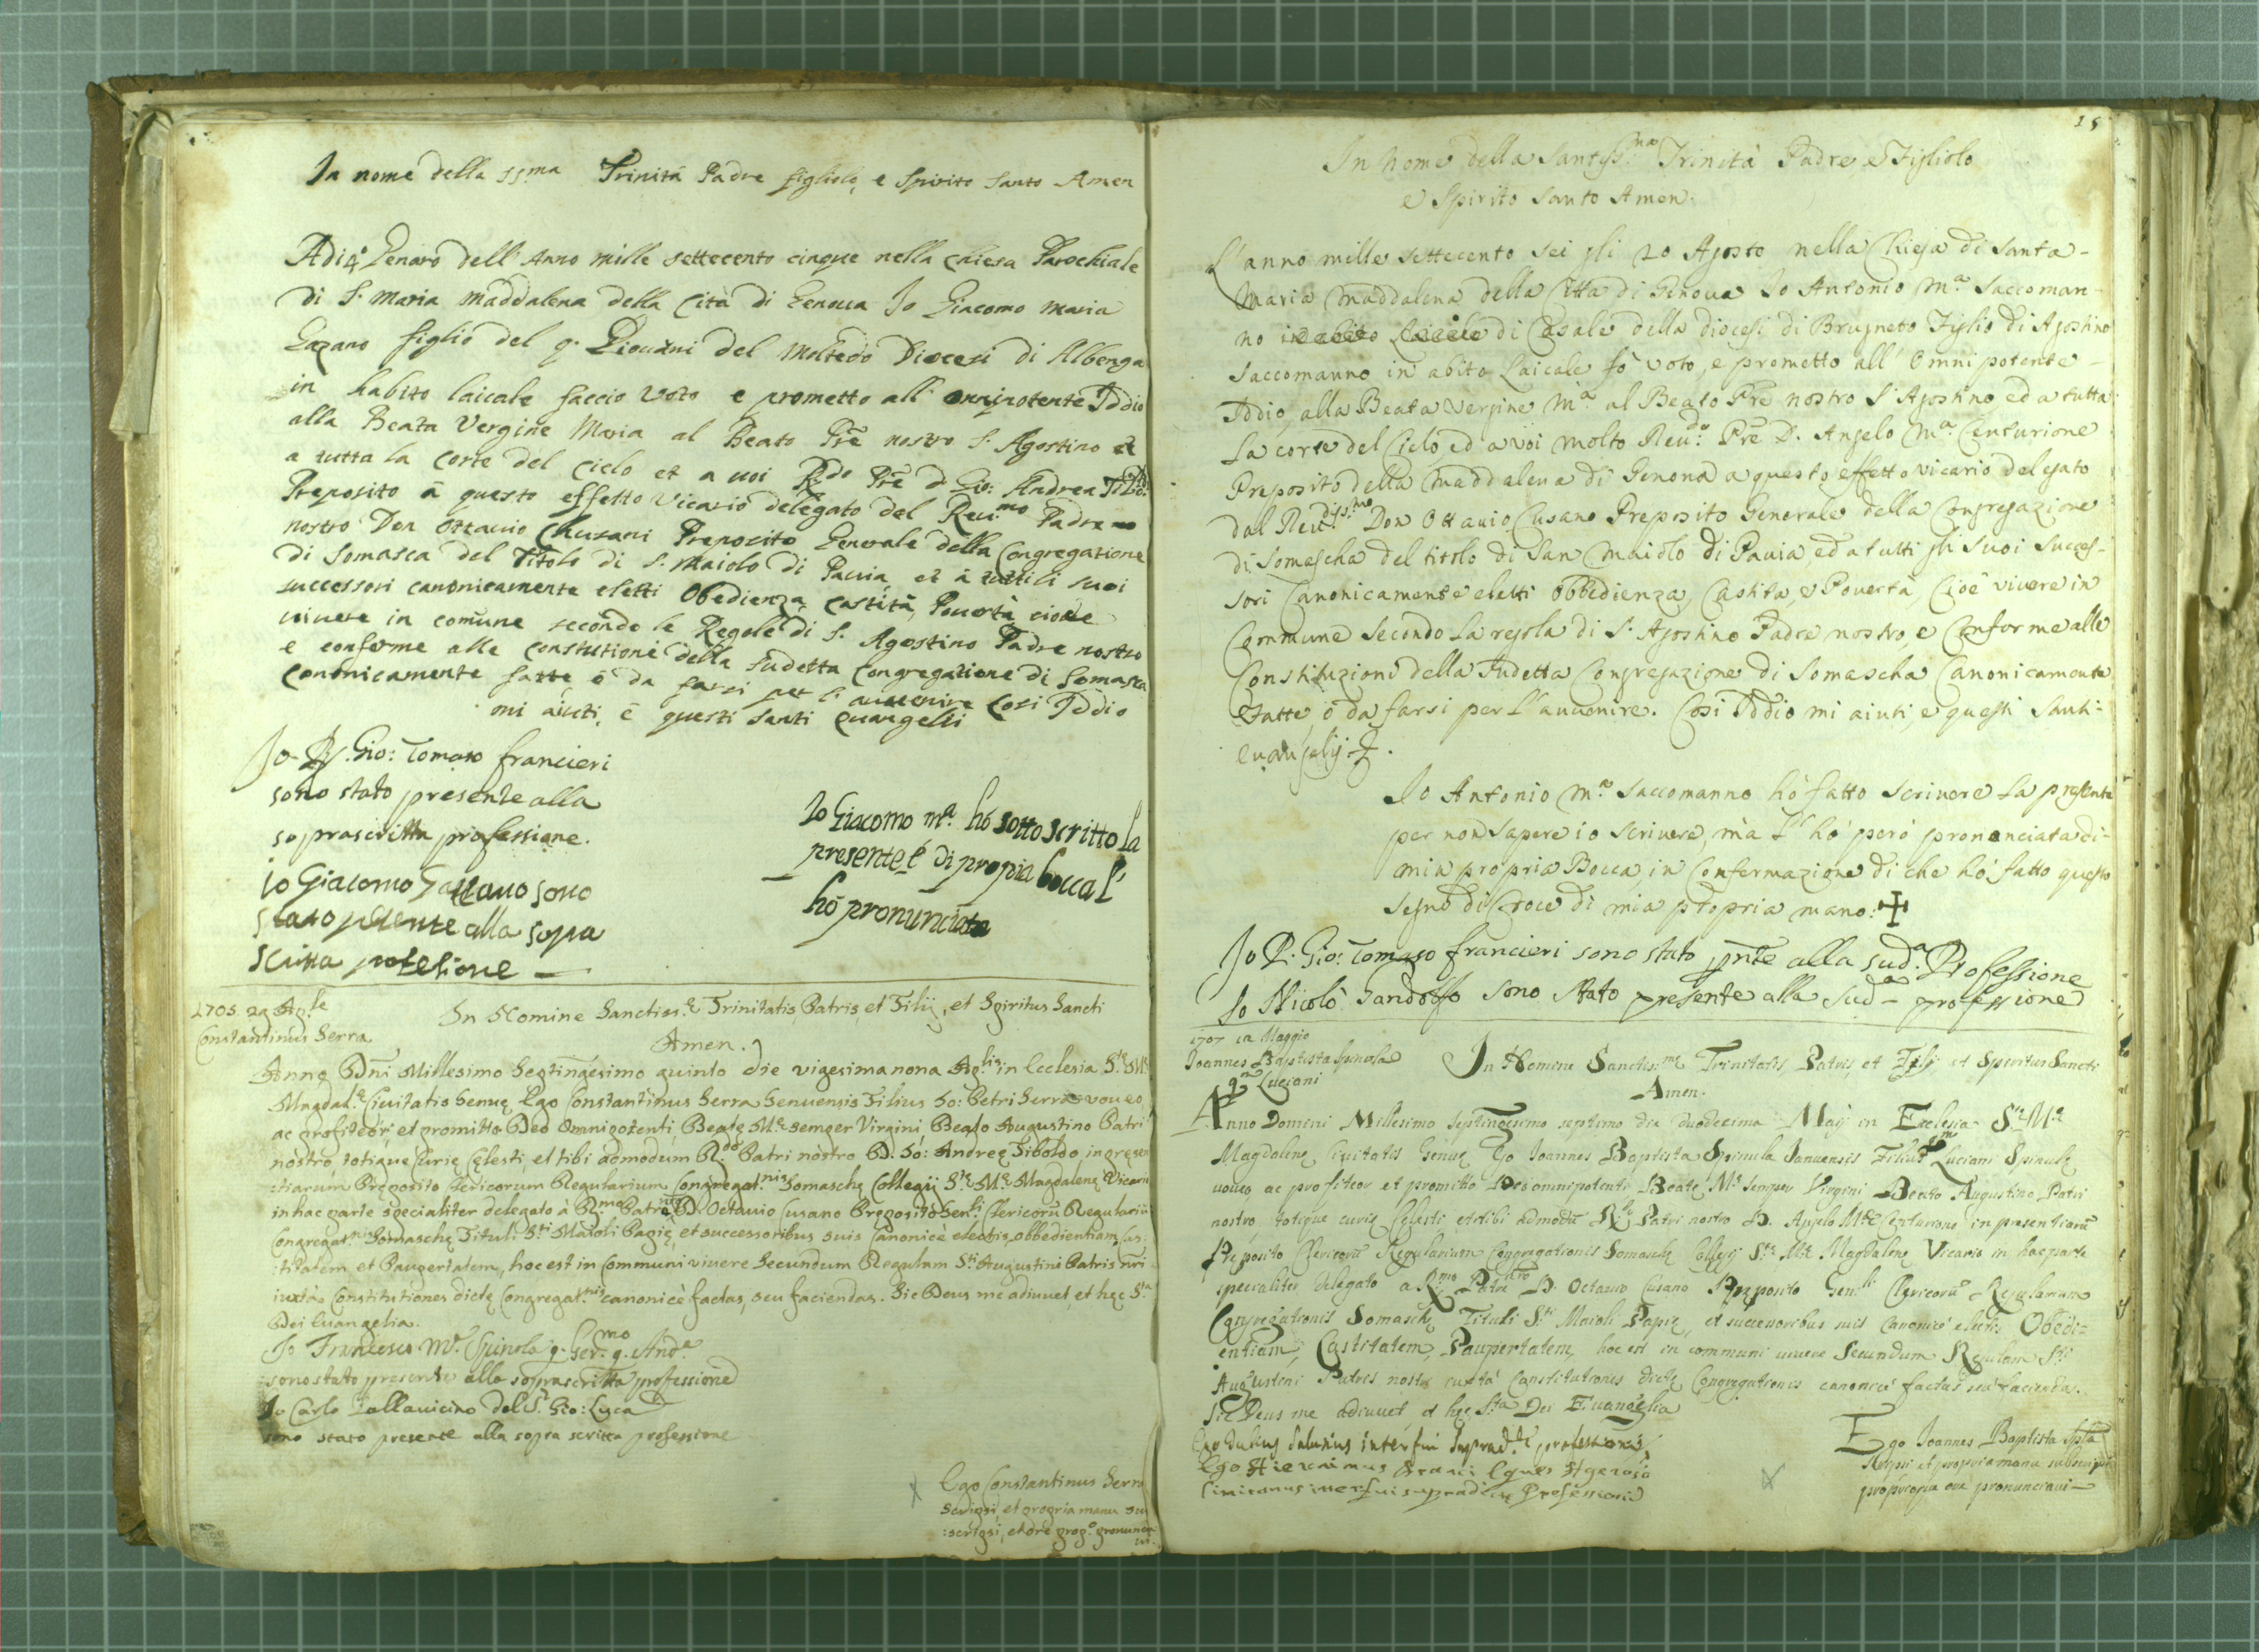 In nome della SS.ma Trinità Padre figliolo, e Spirito Santo Amen
Adi 4 Genaro dell'Anno mille settecento cinque nella chiesa Parochiale
di S. Maria Maddalena della Cità di Genoua Io Giacomo Maria
Gazano figlio del q. Giouani del Moltedo Diocesi di Albenga
in habito laicale faccio voto e prometto all' onnipotente Iddio
alla Beata Vergine Maria al Beato Pre nostro S. Agostino et
a tutta la corte del cielo et a uoi R.do Pre d. Gio: Andrea
Preposito a questo effetto Vicario delegato del Reu.mo Padre
nostro Don Ottauio Chusani Preposito Generale della Congregatione
di Somasca del Titolo di S. Maiolo di Pauia, et à tutti li suoi
successori canonicamente eletti Obedienza, castità, Pouertà cioue
uiuere in comune secondo le Regole di S. Agostino Padre nostro
e conforme alle constutioni della sudetta congregatione di Somasca
cononicamente fatte, ò da farsi per l'auuenire Cosi Iddio
mi aiuti, e questi santi euangelli
Io P. Gio: Tomaso francieri
sono stato presente alla
soprascritta professione.
io Giacomo Gazano sono
stato presente alla sopra
scritta
Io Giacomo m.a hò sotto scritto la
presente è di propia bocca l'
hò pronunciata
1705. 29 Ap.le
Constantinus Serra
In Nomine Sanctiss.ę Trinitatis, Patris, et Filij, et Spiritus Sancti
Amen.
Anno Dñi Millesimo Septingesimo quinto die vigesima nona Ap.lis in Ecclesia S.tę M.ę
Magdal.ę Ciuitatis Genuę Ego Constantinus Serra Genuensis Filius Io: Petri Serra voueo
ac profiteor, et promitto Deo Omnipotenti, Beatę M.ę semper Virgini, Beato Augustino Patri
nostro, totique Curię Cęlesti, et tibi admodum R.do Patri nostro D. Io: Andreę Tiboldo in pręsen
:tiarum Pręposito Clericorum Regularium Congregat.nis Somaschę Collegij S.tę M.ę Magdalenę Vicario
in hac parte specialiter delegato à R.mo Patre D. Octauio Cusano Pręposito Gen.li Clericorũ Regulariũ
Congregat.nis Somaschę Tituli S.ti Maioli Papię, et successoribus suis Canonicè electis, obbedientiam, cas
:titatem, et Paupertatem, hoc est in Communi viuere Secundum Regulam S.ti Augustini Patris nri
iuxtà Constitutiones dictę Congregat.nis canonicè factas, seu faciendas. Sic Deus me adiuuet, et hęc S.ta
Dei Euangelia.
Io Francesco M.a Spinola q. Ser.mo q. And.a
sono stato presente alla soprascritta professione
Io Carlo Pallauicino del S. Gio: Luca
sono stato presente alla sopra scritta professione
Ego Constantinus Serra
scripsi, et propria manu su
:scripsi, et ore prop.o pronuncia
ui.
15
In Nome della Santiss.ma Trinità Padre e Figliolo
e Spirito Santo Amen.
L'anno mille settecento sei gli 20 Agosto nella Chiesa di Santa-
Maria Maddalena della Citta di Genoua Io Antonio M.a Saccoman-
no di Casale della diocesi di Brugneto Figlio di Agostino
Saccomanno in abito Laicale fò voto, e prometto all' Omnipotente-
Iddio, alla Beata Vergine M.a al Beato Pre nostro S. Agostino ed a tutta
La corte del Cielo ed a voi molto Reu.do Pre D. Angelo M.a Centurione
Preposito della Maddalena di Genoua a questo effetto vicario delegato
dal Reudiss.mo Don Ottauio Cusano Preposito Generale della Congregazione
di Somascha del titolo di San Maiolo di Pauia, ed a tutti gli suoi succes-
sori Canonicamente eletti Obbedienza, Castita, e Pouertà, Cioè vivere in
Commune Secondo La regola di S. Agostino Padre nostro, e Conforme alle
Constituzioni della sudetta Congregazione di Somascha Canonicamente
Fatte, o da farsi per L'auuenire. Così Iddio mi aiuti, e questi Santi-
euangelij.
Io Antonio M.a Saccomanno hò fatto scriuere La presente
per non sapere io scriuere, mà L' hò però prononciata di-
mia propria Bocca, in Confermazione di che hò fatto questo
segno di Croce di mia propria mano: ✝
Io P. Gio: Tomaso francieri sono stato pnte alla sud.a Professione
Io Nicolò Gandolfo sono stato presente alla sud.a professione
1707 12 Maggio
Joannes Baptista Spinola
q.m Luciani
In Nomine Sanctis.mę Trinitatis, Patris, et Filij, et Spiritus Sancti
Amen.
Anno Domini Millesimo septingesimo septimo die duodecima Maij in Ecclesia S.tę M.ę
Magdalenę Ciuitatis Genuę Ego Joannes Baptista Spinula Januensis Filius q.m Luciani Spinulę
uoueo, ac profiteor et promitto Deo omnipotenti Beatę M.ę semper Virgini Beato Augustino Patri
nostro, totique curię Cęlesti, et tibi admodũ R.do Patri nostro D. Angelo M.ę Centuriono in presentiarũ
Pręposito Clericorũ Regularium Congregationis Somaschę Collegij S.tę M.ę Magdalenę Vicario in hac parte
specialiter delegato a R.mo Patre nro D. Octauio Cusano Pręposito Gen.li Clericorũ Regularium
Congregationis Somaschę Tituli S.ti Maioli Papię, et successoribus suis canonicè electis Obedi-
entiam, Castitatem, Paupertatem, hoc est in communi uiuere Secundum Regulam S.ti
Augustini Patris nostri iuxtà Constitutiones dictę Congregationis canonicè factas seu facienda.
Sic Deus me adiuuet, et hęc S.ta Dei Euangelia
interfui suprad.ę professioni
Ego Hieronimus
interfui supradictę Professioni
Ego Joannes Baptista Spla
scripsi et propria manu subscripsi
proprioque ore pronunciaui-